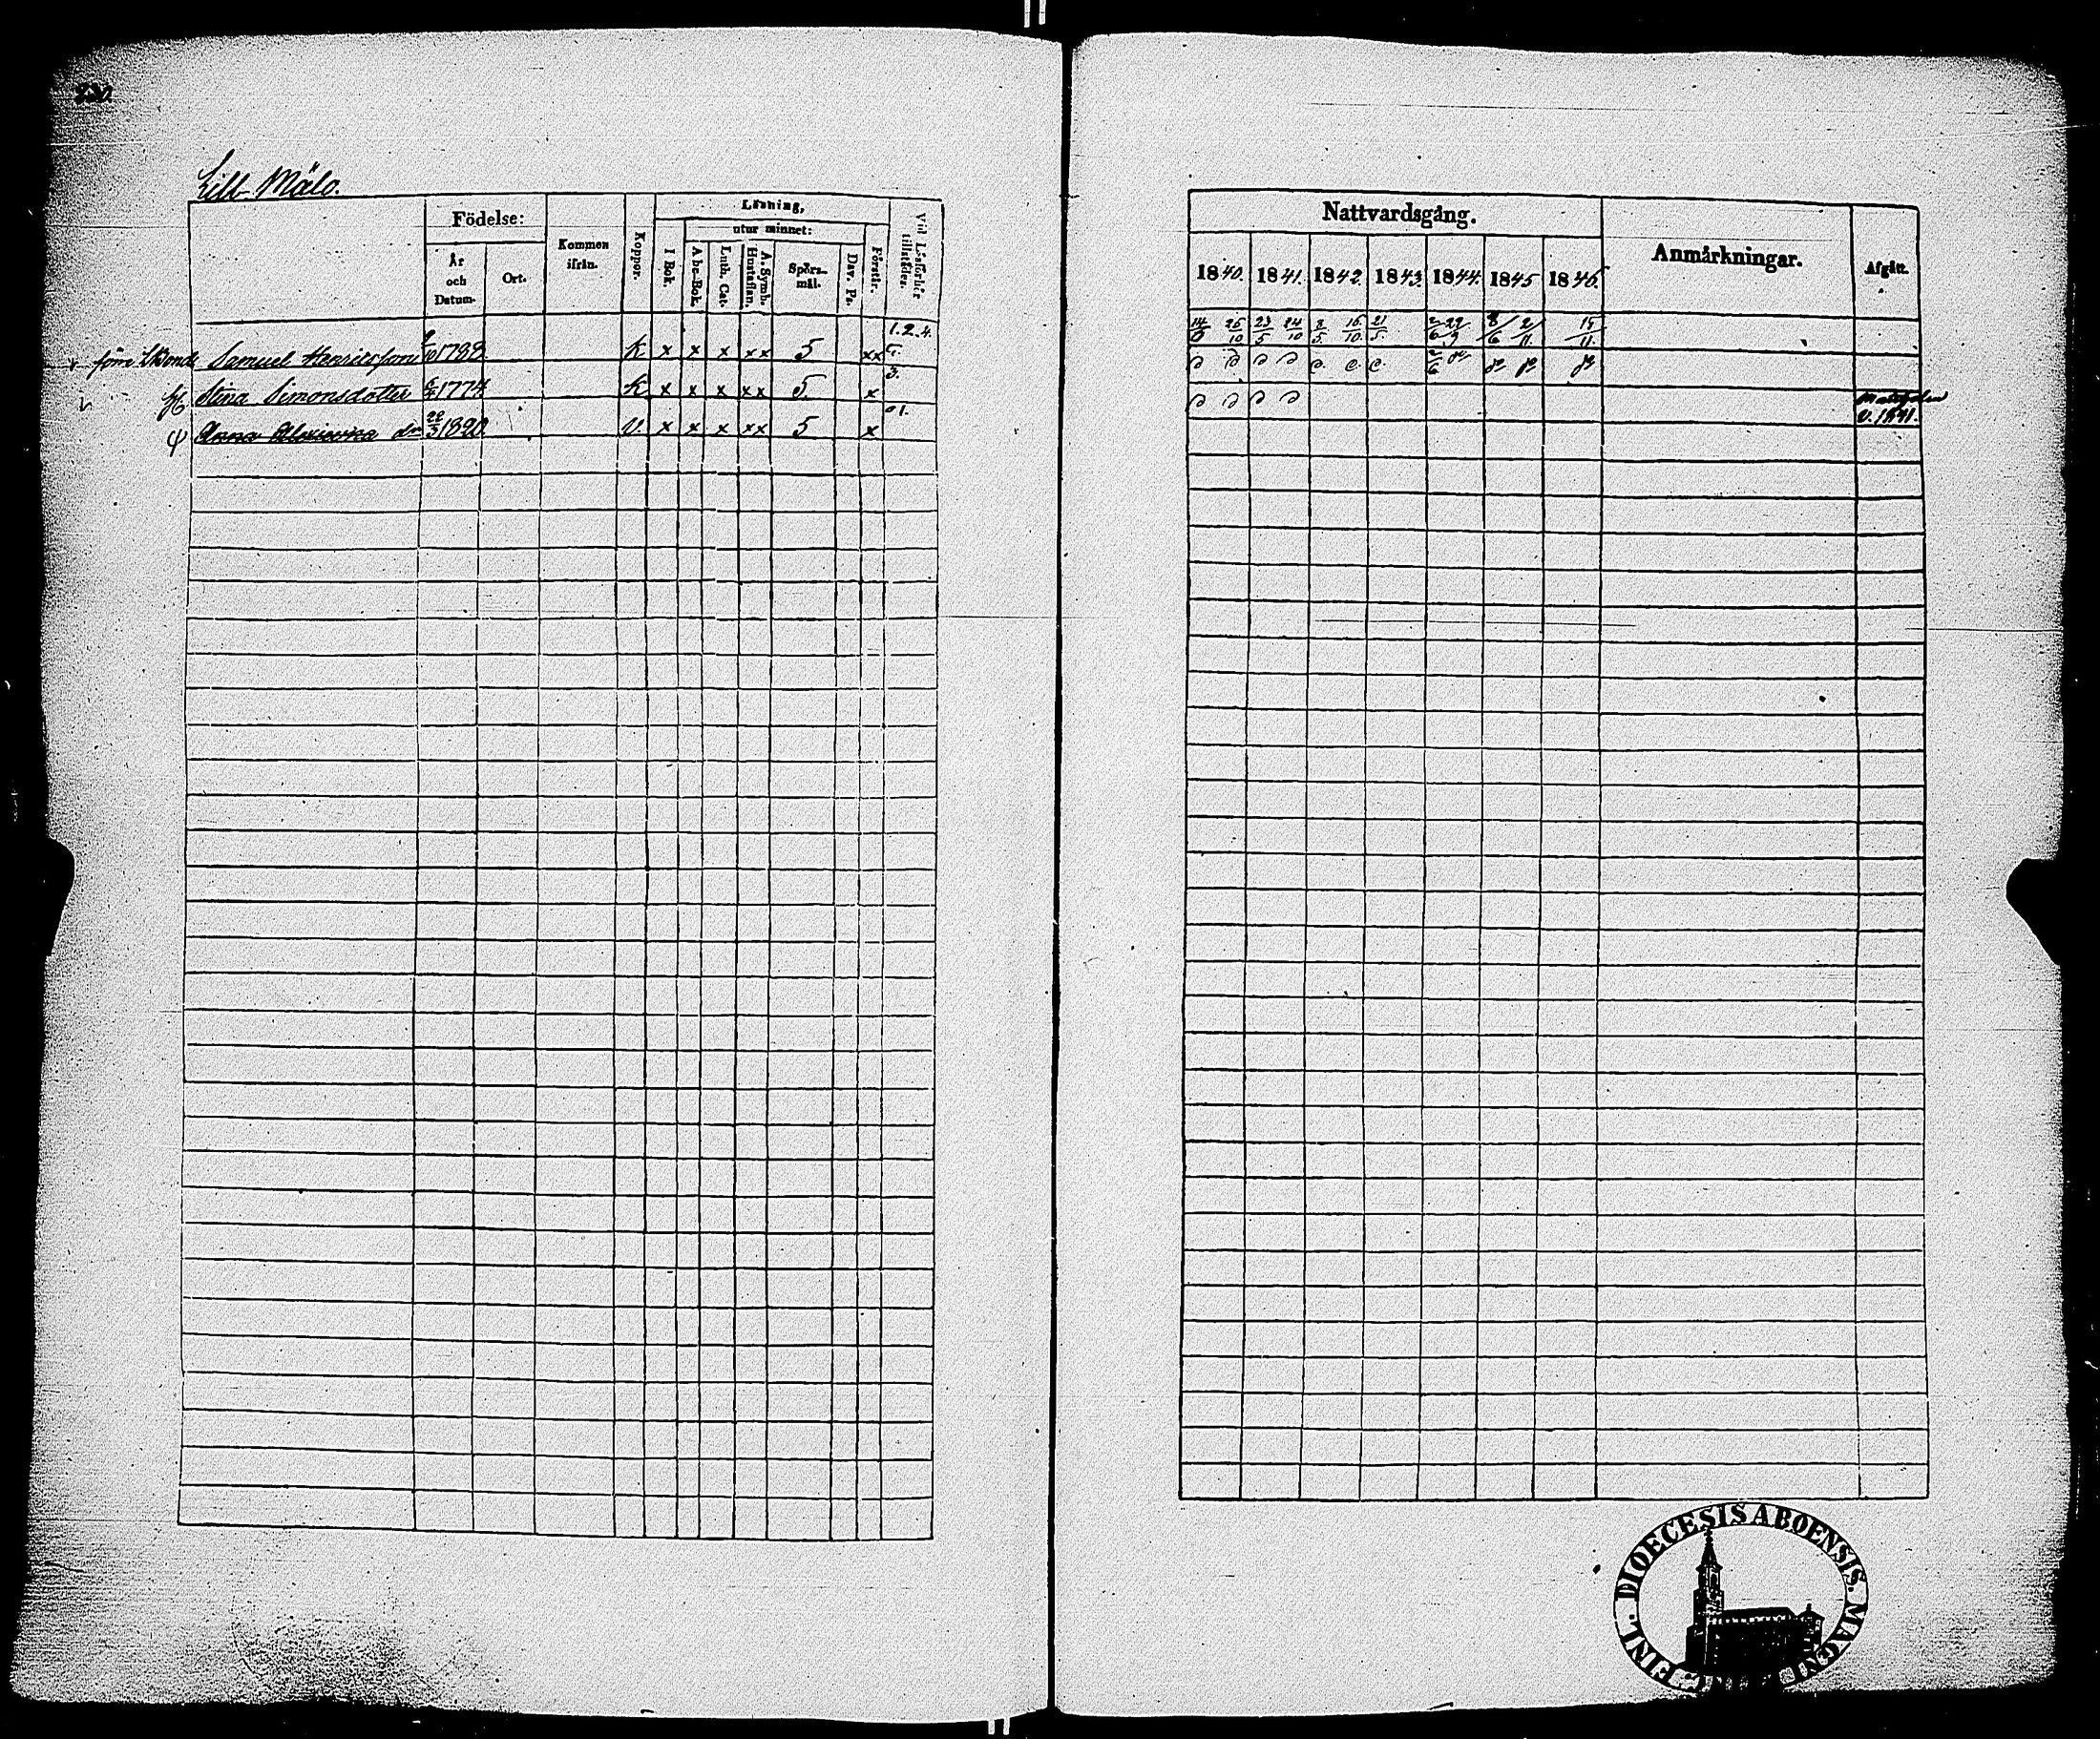 Lill Mälo.
Födelse:
År och Datum.
Ort.
Kommen ifrån.
Koppor.
Läsning,
utur minnet:
I Bok.
A be-Bok.
Luth. Cat.
A. Symb. Hustaflan.
Spörs-mål.
Dav. Ps.
Förstår.
Vid Läsförhör tillstädes.
Samuel Henricsson 1798 K x x x xx 5 xx 1. 2. 4. 5.
H. Stina Simonsdotter 1774 K x x x xx 5. x 3.
Anna 22/3 1820 V. x x x xx 5 x 1.
Nattvardsgång.
Anmärkningar.
Afgått.
1840. 1841. 1842. 1843. 1844. 1845 1846.
25/10 23/5 24/10 8/5 16/10 21/5 2/6 8/6 2/11 15/11
v. 1841.
FINL. DIOECESIS ABOENSIS. MAGNI